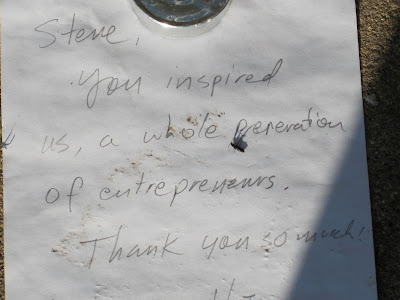 Steve,
You inspired
us, a whole generation
of entrepreneurs.
Thank you so much!